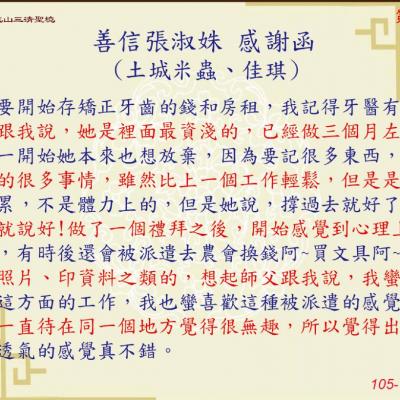 山三清聖境
善信張淑姝 感謝函
(土城米蟲、佳琪)
要開始存矯正牙齒的錢和房租，我記得牙醫有
跟我說，她是裡面最資淺的，已經做三個月左
一開始她本來也想放棄，因為要記很多東西，
的很多事情，雖然比上一個工作輕鬆，但是是
累，不是體力上的，但是她說，撐過去就好了
就說好!做了一個禮拜之後，開始感覺到心理上
，有時後還會被派遣去農會換錢阿~買文具阿~
照片、印資料之類的，想起師父跟我說，我蠻
這方面的工作，我也蠻喜歡這種被派遣的感覺
一直待在同一個地方覺得很無趣，所以覺得出
透氣的感覺真不錯。
105-